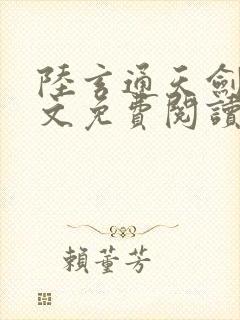 陸玄通天劍
文免費閱讀
賴董芳